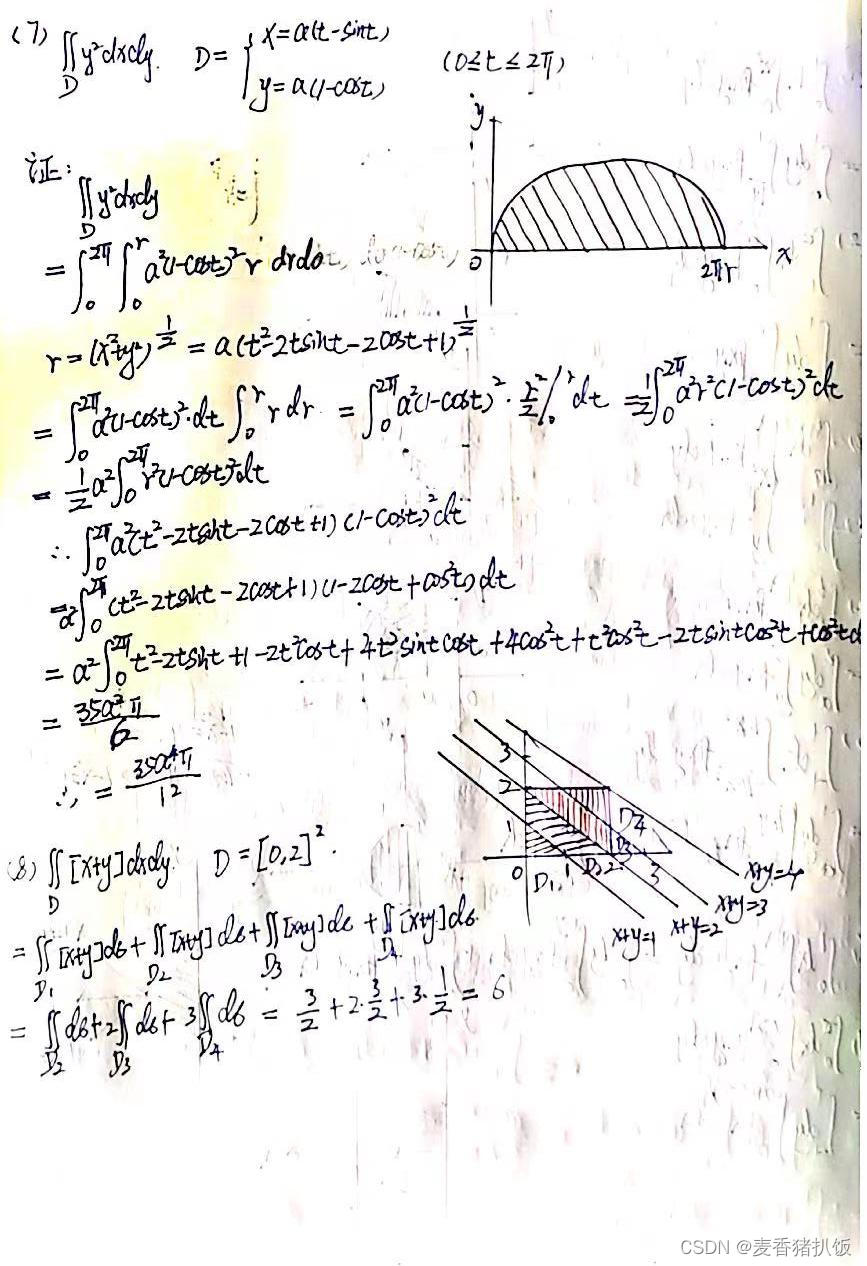 (7) ∬_D y²dxdy. D = { x=a(t-sint) y=a(1-cost) (0≤t≤2π)
y
证:
∬_D y²dxdy
= ∫_0^{2π} ∫_0^r a²(1-cost)² r drdθ
0 2πr x
r = (x²+y²)^{1/2} = a(t²-2tsint-2cost+1)^{1/2}
= ∫_0^{2π} a²(1-cost)²·dt ∫_0^r r dr = ∫_0^{2π} a²(1-cost)²·r²/2|_0^r dt = 1/2 ∫_0^{2π} a²r²(1-cost)²dt
= 1/2 a² ∫_0^{2π} r²(1-cost)²dt
∴ ∫_0^{2π} a²(t²-2tsint-2cost+1)(1-cost)²dt
= a² ∫_0^{2π} (t²-2tsint-2cost+1)(1-2cost+cos²t)dt
= a² ∫_0^{2π} t²-2tsint+1-2t²cost+4t²sintcost+4cos²t+t²cos²t-2tsintcos²t+cos²t d
= 35a²π/6
∴ = 35a⁴π/12
3
2
1
0 D₁ 1 D₂ 2 D₃ D₄ 3
x+y=1 x+y=2 x+y=3 x+y=4
(8) ∬_D [x+y]dxdy D=[0,2]².
= ∬_{D₁} [x+y]dσ + ∬_{D₂} [x+y]dσ + ∬_{D₃} [x+y]dσ + ∬_{D₄} [x+y]dσ
= ∬_{D₂} dσ + 2∬_{D₃} dσ + 3∬_{D₄} dσ = 3/2 + 2·3/2 + 3·1/2 = 6
CSDN @麦香猪扒饭